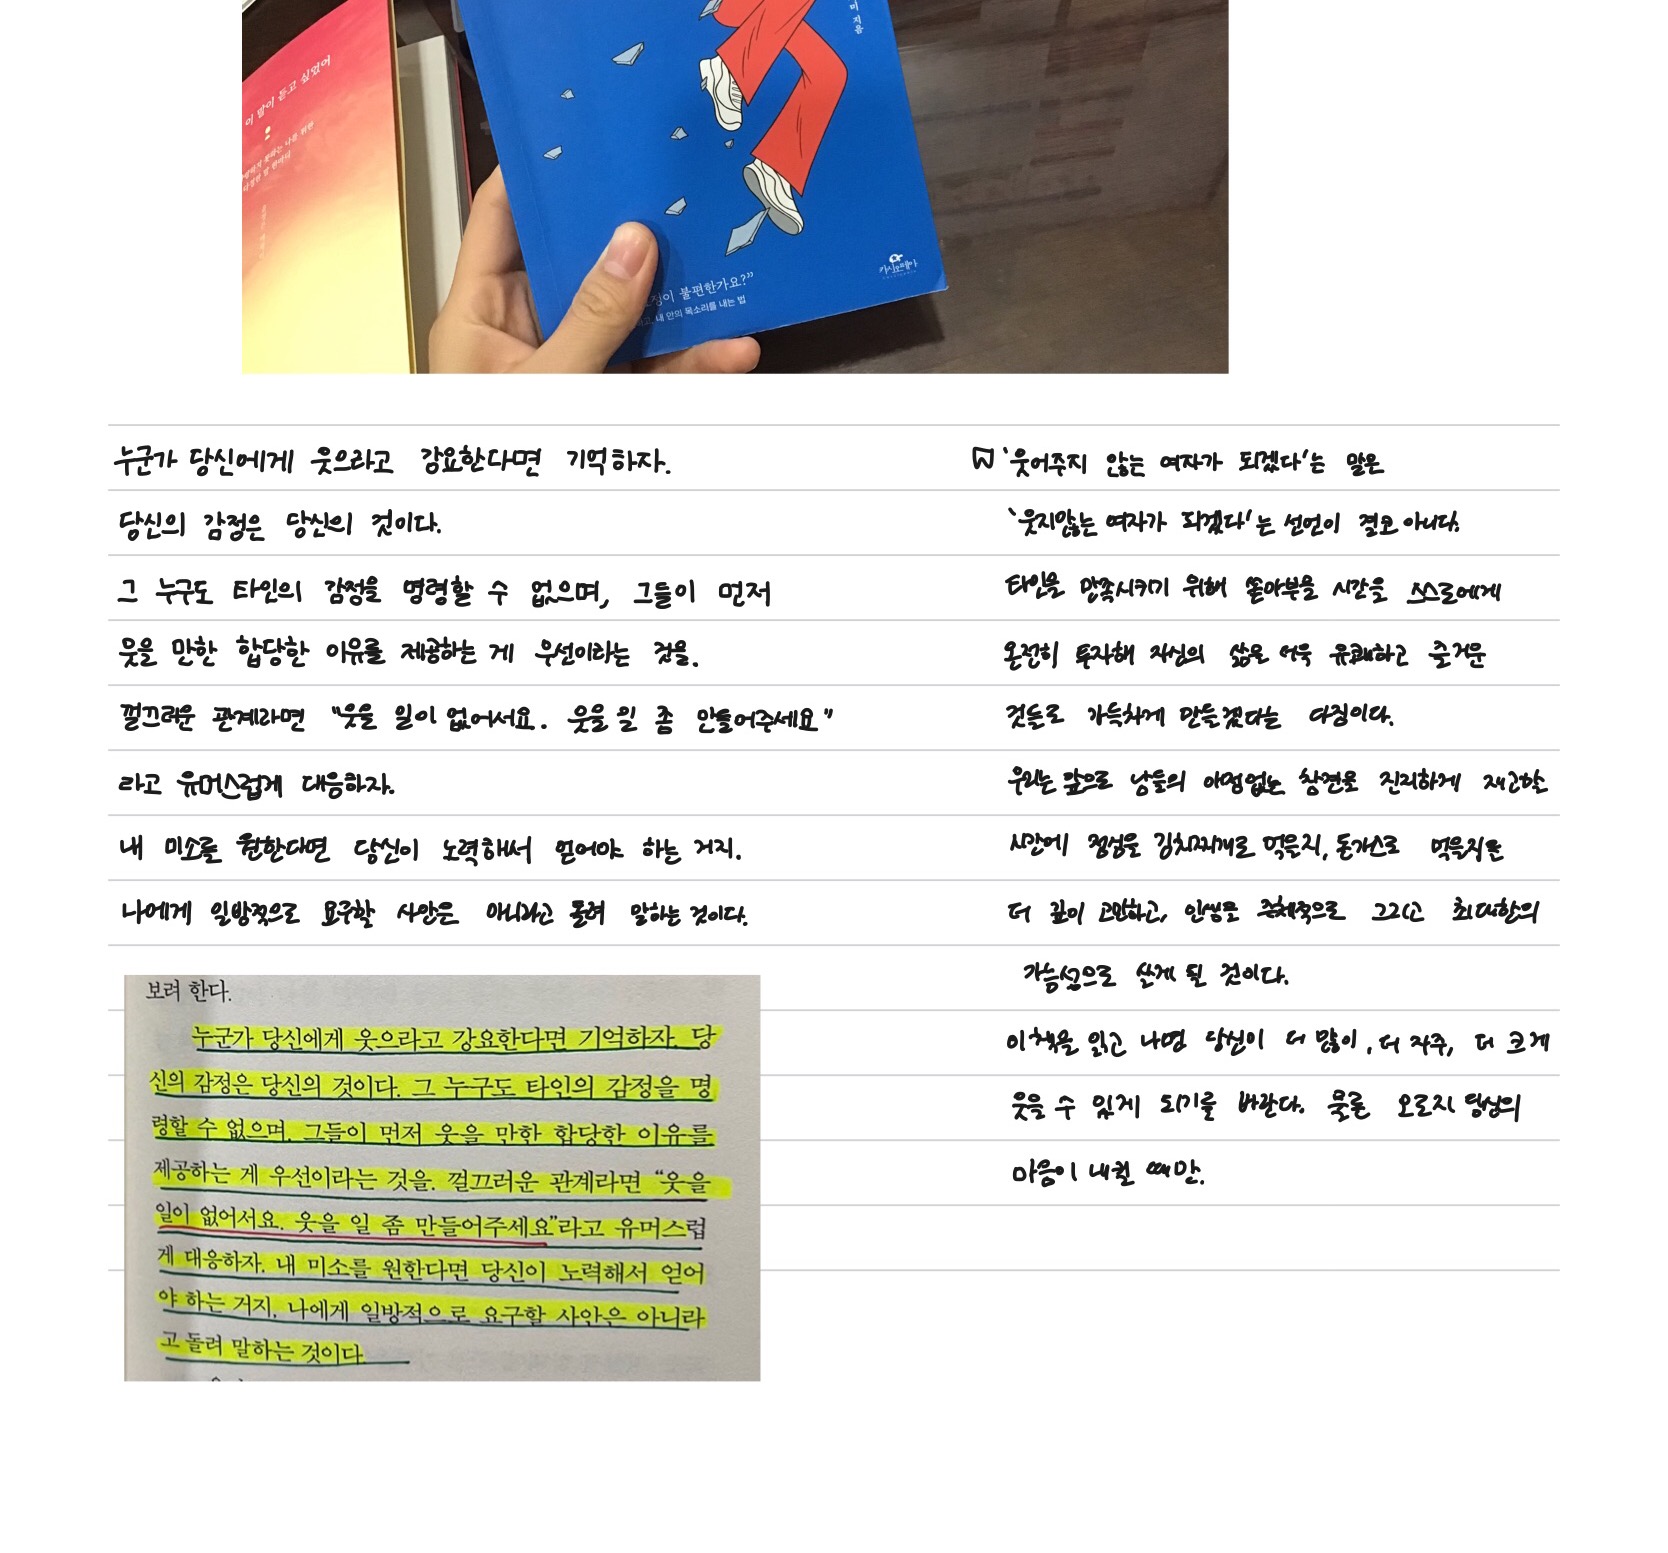 이 말이 듣고 싶었어
미 지음
카시오페아
정이 불편한가요?”
고, 내 안의 목소리를 내는 법
누군가 당신에게 웃으라고 강요한다면 기억하자.
당신의 감정은 당신의 것이다.
그 누구도 타인의 감정을 명령할 수 없으며, 그들이 먼저
웃을 만한 합당한 이유를 제공하는 게 우선이라는 것을.
껄끄러운 관계라면 “웃을 일이 없어서요. 웃을 일 좀 만들어주세요”
라고 유머스럽게 대응하자.
내 미소를 원한다면 당신이 노력해서 얻어야 하는 거지.
나에게 일방적으로 요구할 사안은 아니라고 돌려 말하는 것이다.
보려 한다.
누군가 당신에게 웃으라고 강요한다면 기억하자. 당
신의 감정은 당신의 것이다. 그 누구도 타인의 감정을 명
령할 수 없으며, 그들이 먼저 웃을 만한 합당한 이유를
제공하는 게 우선이라는 것을. 껄끄러운 관계라면 “웃을
일이 없어서요. 웃을 일 좀 만들어주세요”라고 유머스럽
게 대응하자. 내 미소를 원한다면 당신이 노력해서 얻어
야 하는 거지, 나에게 일방적으로 요구할 사안은 아니라
고 돌려 말하는 것이다.
‘웃어주지 않는 여자가 되겠다’는 말은
‘웃지않는 여자가 되겠다’는 선언이 결코 아니다.
타인을 만족시키기 위해 쏟아부을 시간을 스스로에게
온전히 투자해 자신의 삶을 더욱 유쾌하고 즐거운
것들로 가득차게 만들겠다는 다짐이다.
우리는 앞으로 남들의 의미없는 참견을 진지하게 재고할
시간에 점심을 김치찌개로 먹을지, 돈가스로 먹을지를
더 깊이 고민하고, 인생을 주체적으로 그리고 최대한의
가능성으로 살게 될 것이다.
이 책을 읽고 나면 당신이 더 많이, 더 자주, 더 크게
웃을 수 있게 되기를 바란다. 물론 오로지 당신의
마음이 내킬 때만.